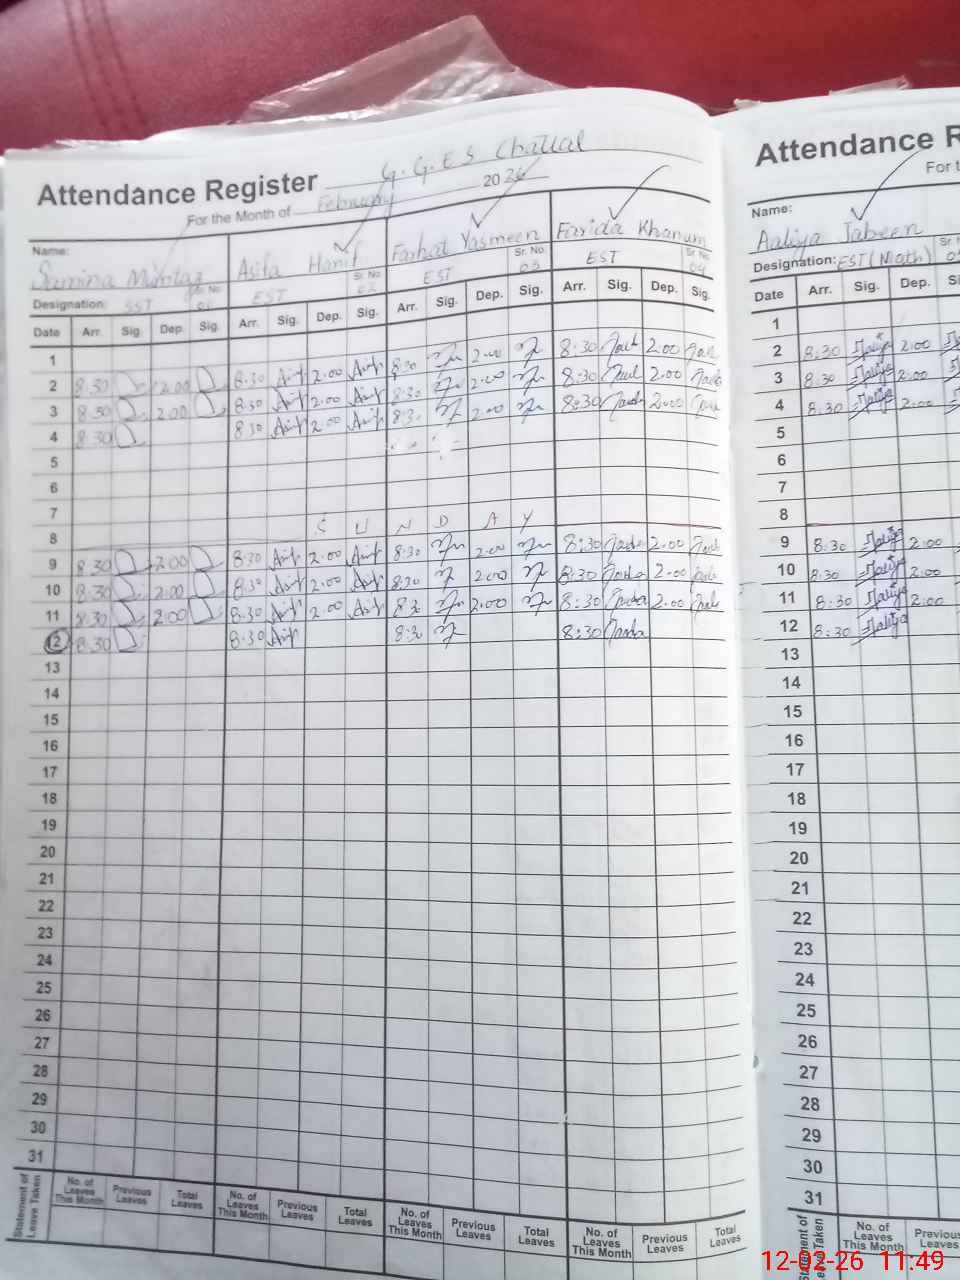 G.G.E.S Chattal
Attendance Register
For the Month of February 2026
Name:
Samina Mumtaz Asifa Hanif Farhat Yasmeen Farida Khanum
Sr. No. 01 Sr. No. 02 Sr. No. 03 Sr. No. 04
Designation: SST EST EST EST
Date Arr. Sig. Dep. Sig. Arr. Sig. Dep. Sig. Arr. Sig. Dep. Sig. Arr. Sig. Dep. Sig.
1
2 8:30 2:00 8:30 2:00 8:30 2:00 8:30 2:00
3 8:30 2:00 8:30 2:00 8:30 2:00 8:30 2:00
4 8:30 8:30 2:00 8:30 2:00 8:30 2:00
5
6
7
8 S U N D A Y
9 8:30 2:00 8:30 2:00 8:30 2:00 8:30 2:00
10 8:30 2:00 8:30 2:00 8:30 2:00 8:30 2:00
11 8:30 2:00 8:30 2:00 8:30 2:00 8:30 2:00
12 8:30 8:30 8:30 8:30
13
14
15
16
17
18
19
20
21
22
23
24
25
26
27
28
29
30
31
Statement of Leave Taken
No. of Leaves This Month Previous Leaves Total Leaves No. of Leaves This Month Previous Leaves Total Leaves No. of Leaves This Month Previous Leaves Total Leaves No. of Leaves This Month Previous Leaves Total Leaves
Attendance R
For t
Name:
Aaliya Jabeen
Designation: EST (Math)
Date Arr. Sig. Dep.
1
2 8:30 Aaliya 2:00
3 8:30 Aaliya 2:00
4 8:30 Aaliya 2:00
5
6
7
8
9 8:30 Aaliya 2:00
10 8:30 Aaliya 2:00
11 8:30 Aaliya 2:00
12 8:30 Aaliya
13
14
15
16
17
18
19
20
21
22
23
24
25
26
27
28
29
30
31
Statement of Leave Taken
No. of Leaves This Month Previous Leaves
12-02-26 11:49